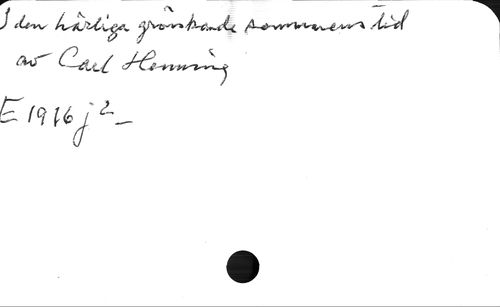 I den härliga grönskande sommarens tid
av Carl Henning
E 1916 j 2 –